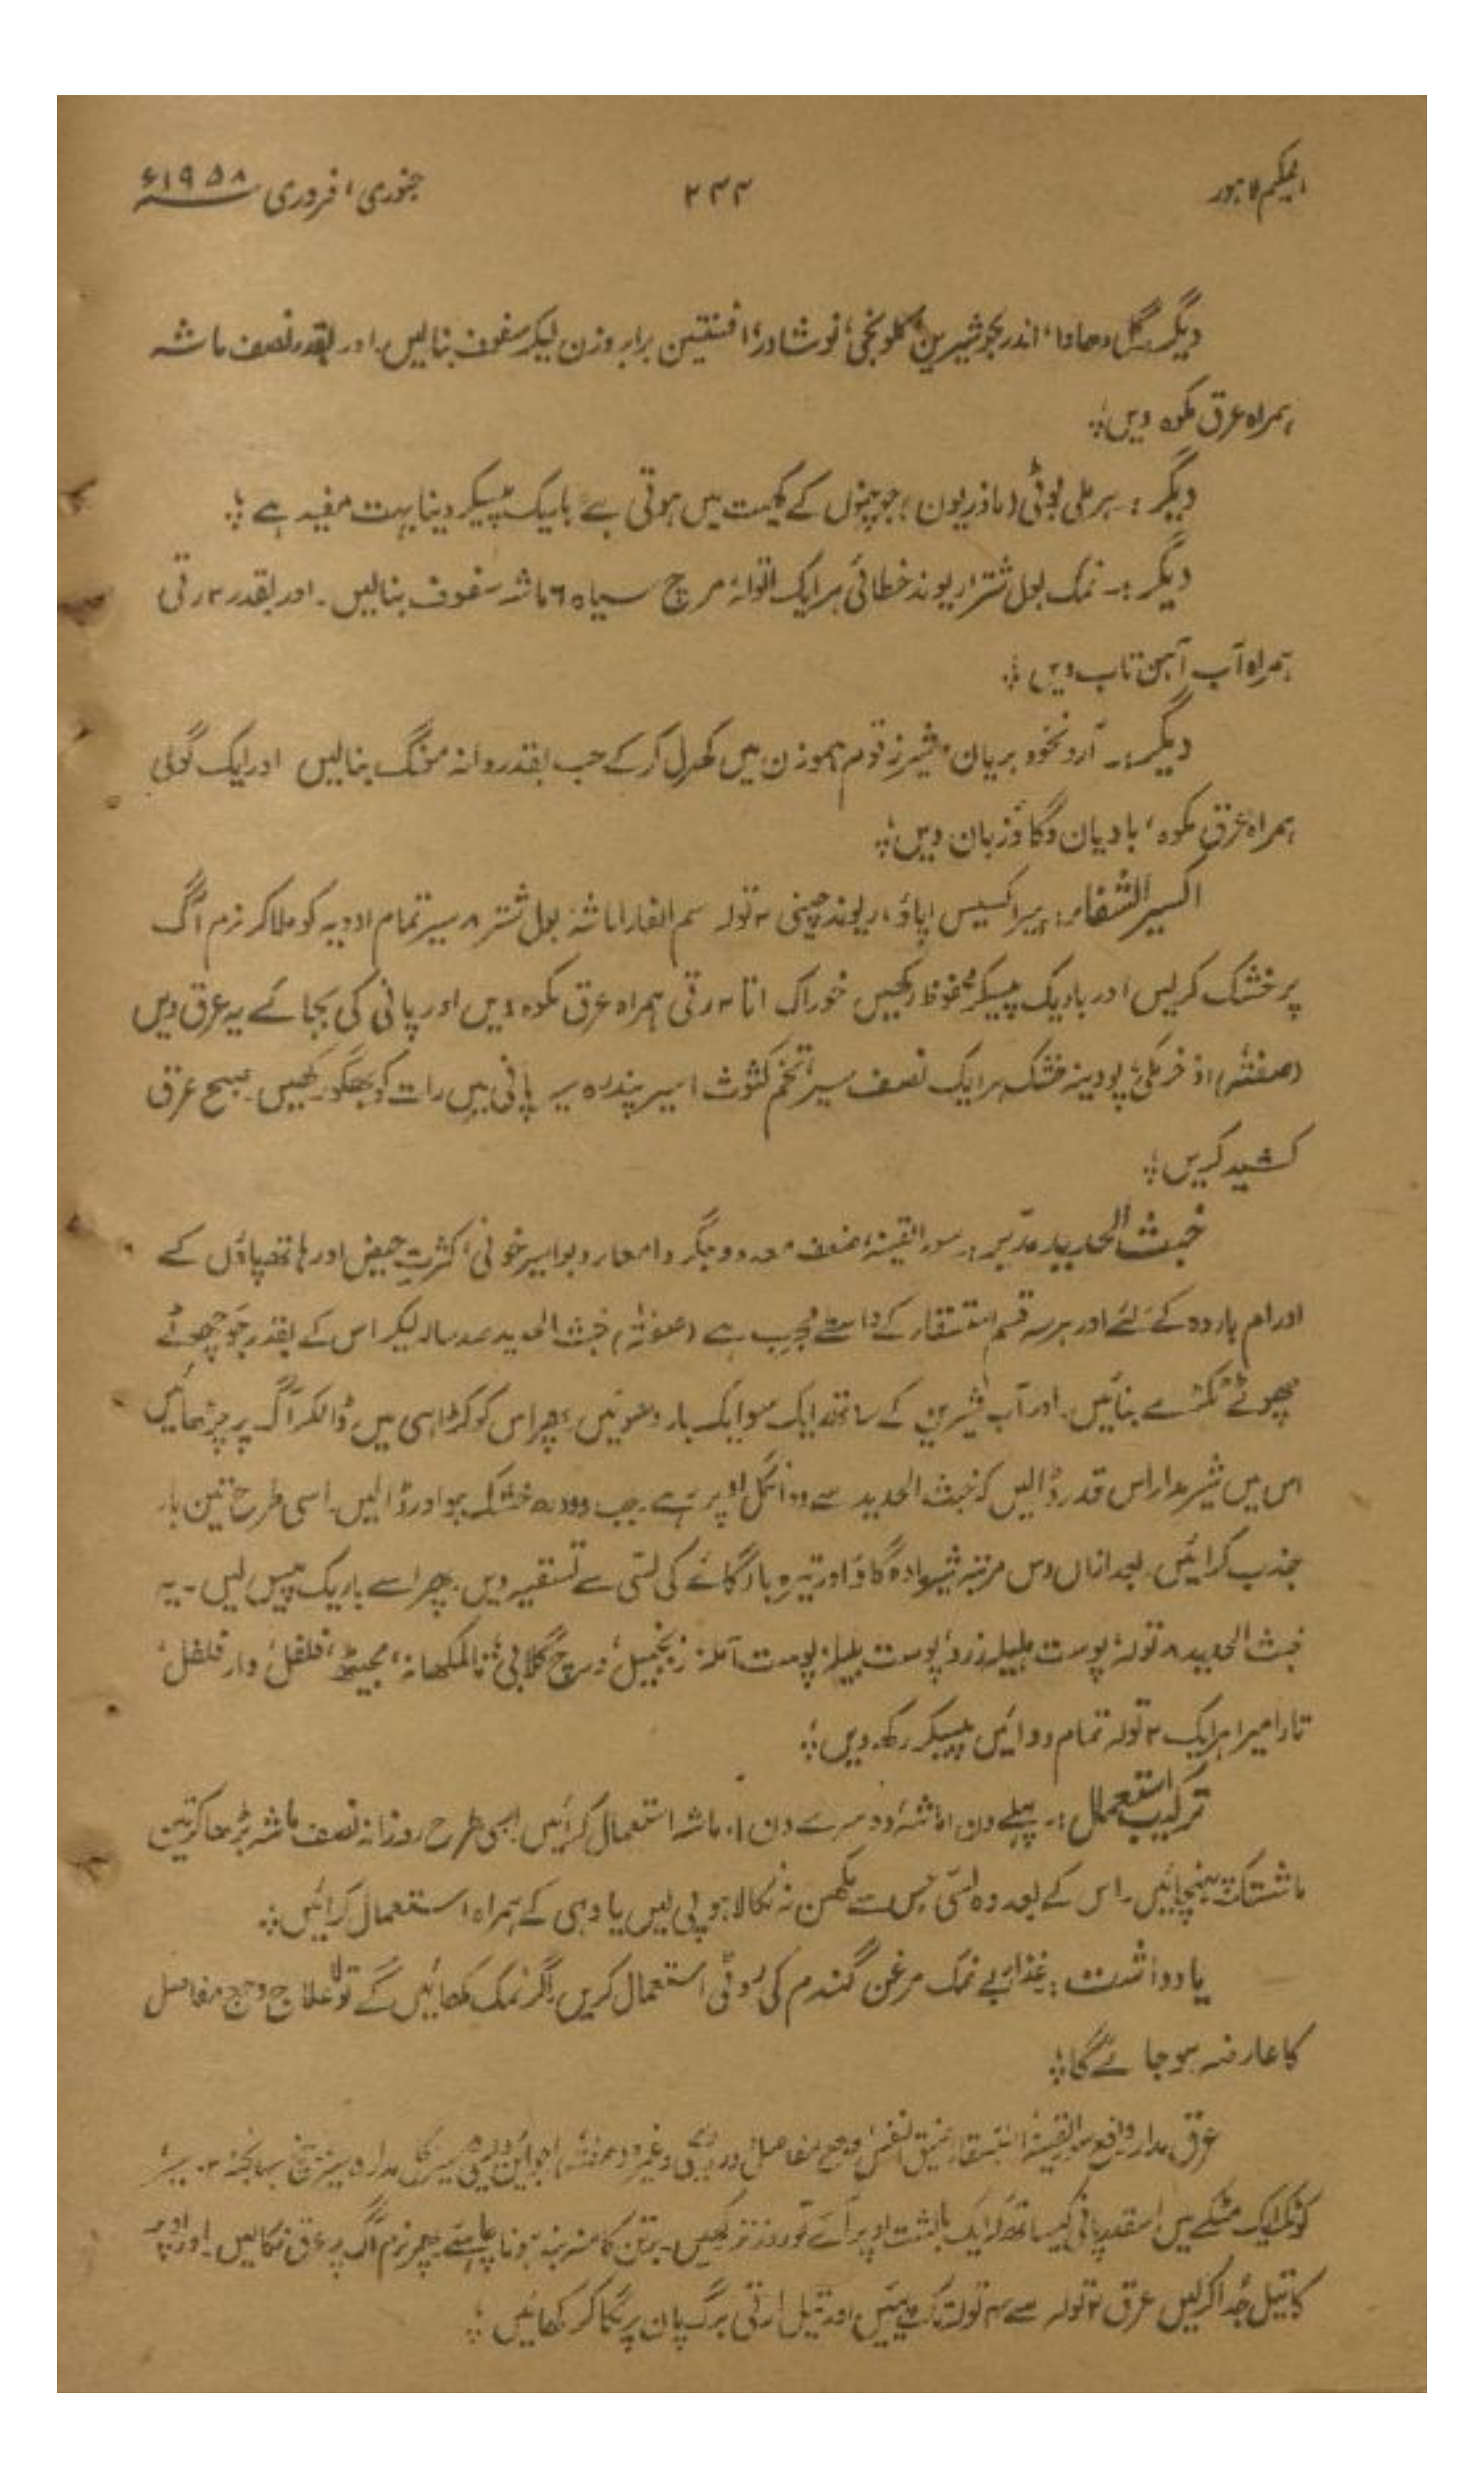 الحکیم لاہور ۲۴۴ جنوری، فروری ۱۹۵۸ء
دیگر۔ گل دھاوا، اندر جو شیریں، کلونجی، نوشادر، افسنتین برابر وزن لیکر سفوف بنالیں۔ اور بقدر نصف ماشہ
ہمراہ عرق مکوہ دیں؛
دیگر :۔ ہرملی بوٹی (ماذریون) جو چنوں کے کھیت میں ہوتی ہے باریک پیسکر دینا بہت مفید ہے؛
دیگر :۔ نمک بول شتر، ریوند خطائی ہر ایک ا تولہ، مرچ سیاہ ۶ ماشہ سفوف بنالیں۔ اور بقدر ۴ رتی
ہمراہ آب آہن تاب دیں؛
دیگر :۔ آرد نخود بریان، شیر زقوم ہموزن میں کھرل کر کے حب بقدر دانہ مونگ بنالیں اور ایک گولی
ہمراہ عرق مکوہ، بادیان و گاؤزبان دیں؛
اکسیر الشفاء : ہیرا کسیس اپاؤ، ریوند چینی ۴ تولہ سم الفار ا ماشہ، بول شتر ۸ سیر تمام ادویہ کو ملا کر نرم آگ
پر خشک کرلیں اور باریک پیسکر محفوظ رکھیں خوراک ا تا ۴ رتی ہمراہ عرق مکوہ دیں اور پانی کی بجائے یہ عرق دیں
(صفتہ) اذخر مکی، پودینہ خشک ہر ایک نصف سیر، تخم کثوث ا سیر پندرہ سیر پانی میں رات کو بھگو رکھیں۔ صبح عرق
کشید کریں؛
خبث الحدید مدبر : سوء القنیہ، ضعف معدہ و جگر و امعاء و بواسیر خونی، کثرت حیض اور ہاتھ پاؤں کے
اورام باردہ کے لئے اور ہر سہ قسم استسقاء کے واسطے مجرب ہے (صفتہٗ) خبث الحدید صد سالہ لیکر اس کے بقدر جو چھوٹے
چھوٹے ٹکڑے بنائیں۔ اور آب شیریں کے ساتھ ایک سو ایک بار دھوئیں پھر اس کو کڑاہی میں ڈالکر آگ پر چڑھائیں
اس میں شیر مدار اس قدر ڈالیں کہ خبث الحدید سے دو انگل اوپر رہے۔ جب دودھ خشک ہو اور ڈالیں۔ اسی طرح تین بار
جذب کرائیں۔ بعد ازاں دس مرتبہ شیر مادہ گاؤ اور تیرہ بار گائے کی لسی سے تسقیہ دیں۔ پھر اسے باریک پیس لیں۔ یہ
خبث الحدید ۸ تولہ، پوست ہلیلہ زرد، پوست بلیلہ، پوست آملہ، زنجبیل، ورچ گلابی، تالمکھانہ، مجیٹھ، فلفل، دار فلفل،
تارامیرا ہر ایک ۲ تولہ تمام دوائیں پیسکر رکھ دیں؛
ترکیب استعمال :۔ پہلے دن ا ماشہ، دوسرے دن ۱۰ ماشہ استعمال کرائیں اسی طرح روزانہ نصف ماشہ بڑھا کر تین
ماشہ تک پہنچائیں۔ اس کے بعد وہ لسی جس سے مکھن نہ نکالا ہو پی لیں یا دہی کے ہمراہ استعمال کرائیں؛
یادداشت : غذا بے نمک مرغن گندم کی روٹی استعمال کریں اگر نمک کھائیں گے تو لاعلاج وجع مفاصل
کا عارضہ ہو جائے گا؛
عرق مدار دافع سوء القنیہ، استسقاء، ضیق النفس، وجع مفاصل، درد ریحی وغیرہ (صفتہٗ) اجوائن دیسی سیر گل مدار ۵ سیر، بیخ سہانجنہ ۲۰ سیر
کوٹکر ایک مٹکے میں اسقدر پانی کیساتھ کہ ایک بالشت اوپر آئے دو روز تر رکھیں۔ برتن کا منہ بند ہونا چاہئے پھر نرم آگ پر عرق نکالیں۔ اور اوپر
کا تیل جدا کرلیں عرق ۲ تولہ سے ۴ تولہ تک پئیں اور تیل ا رتی برگ پان پر لگا کر کھائیں؛